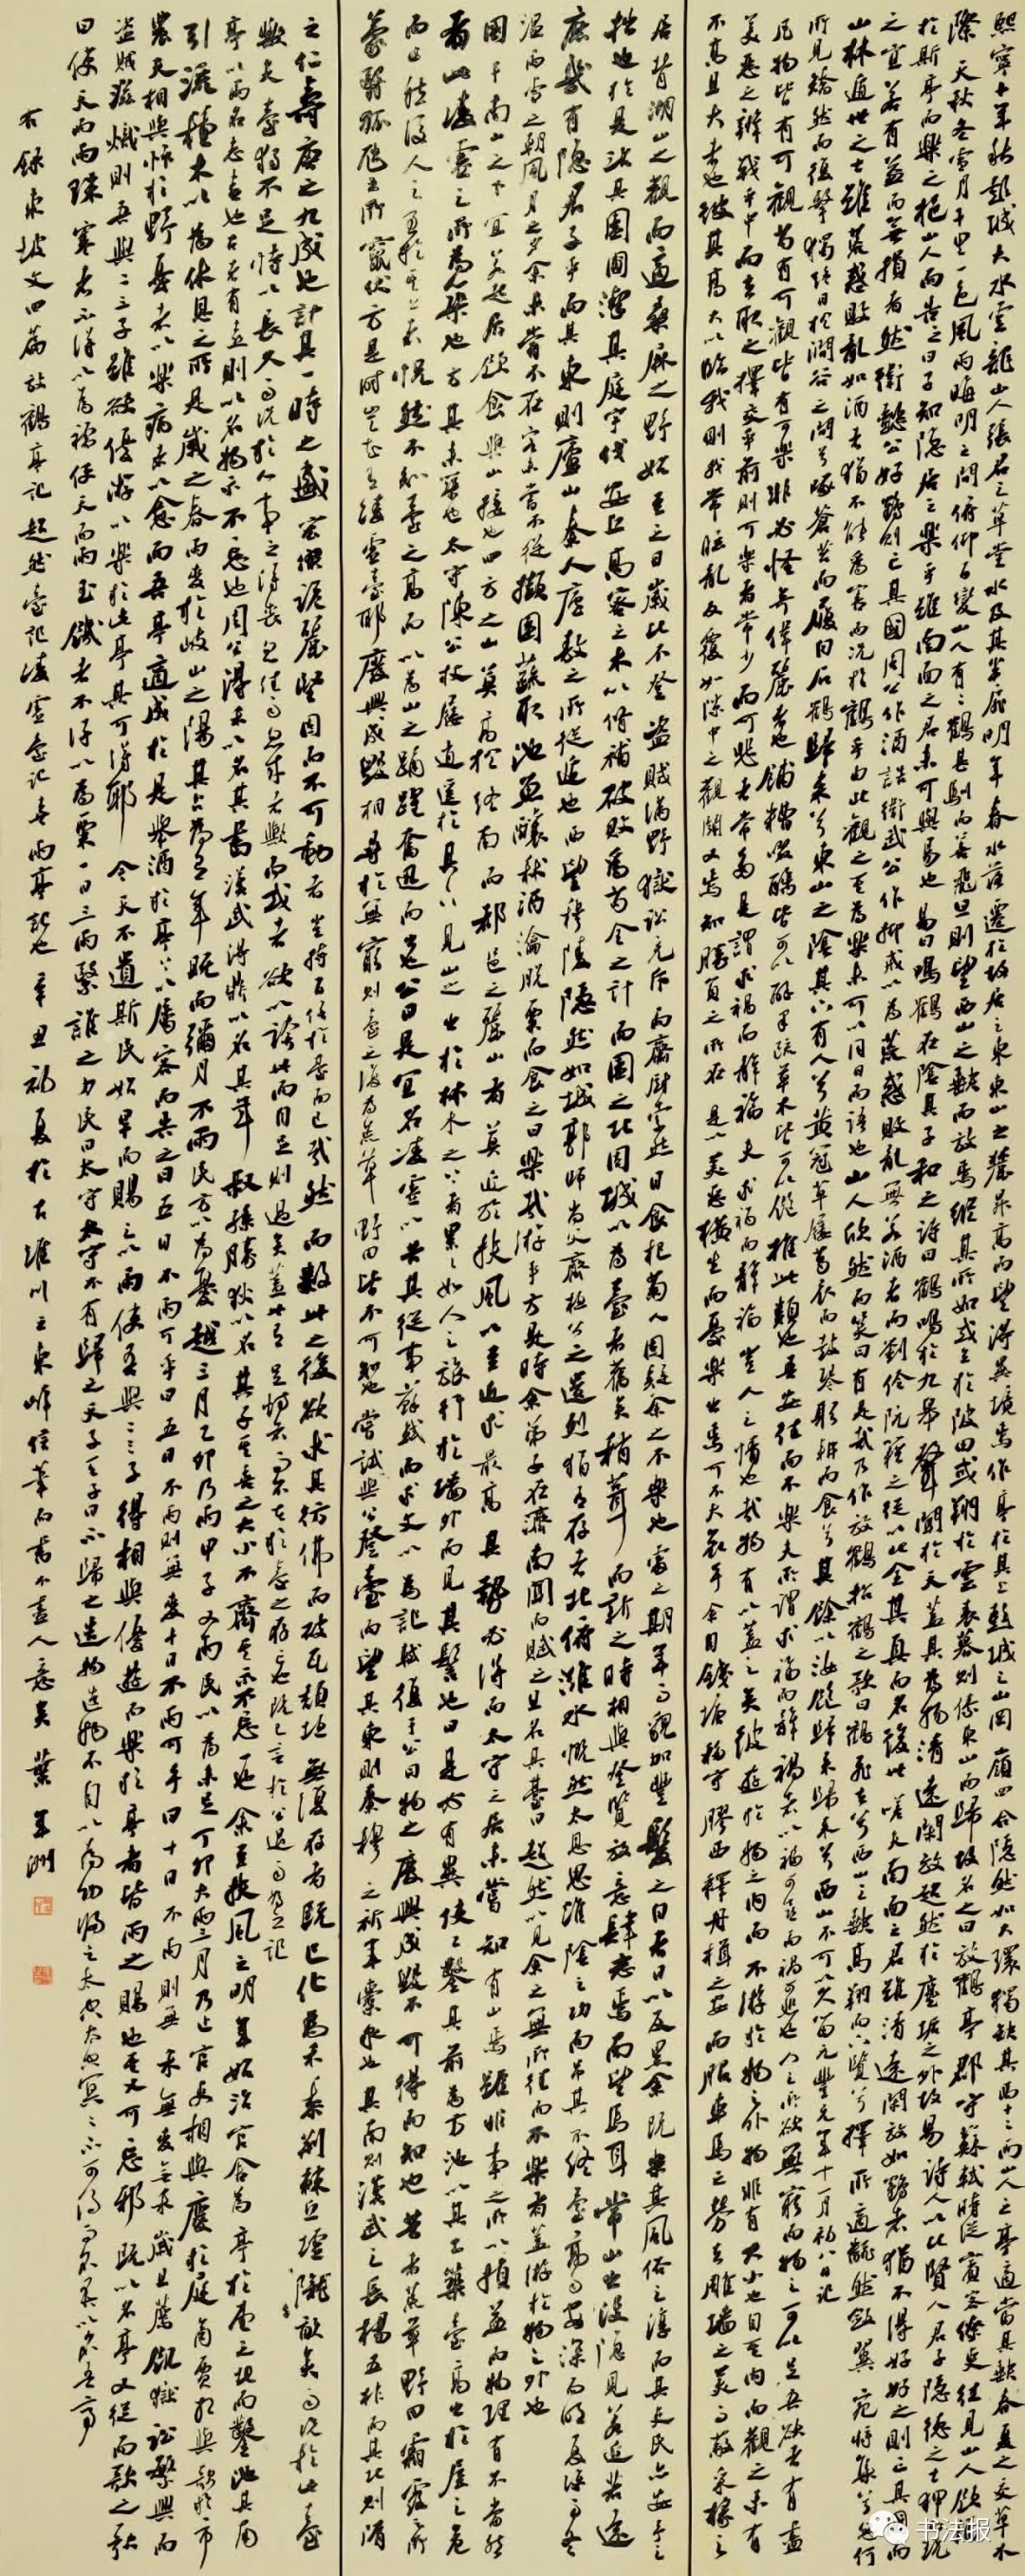 熙寧十年秋彭城大水雲龍山人張君之草堂水及其半扉明年春水落遷於故居之東東山之麓昇高而望得異境焉作亭於其上彭城之山岡嶺四合隱然如大環獨缺其西十二而山人之亭適當其缺春夏之交草木
際天秋冬雪月千里一色風雨晦明之間俯仰百變山人有二鶴甚馴而善飛旦則望西山之缺而放焉縱其所如或立於陂田或翔於雲表暮則傃東山而歸故名之曰放鶴亭郡守蘇軾時從賓客僚吏往見山人飲酒
於斯亭而樂之挹山人而告之曰子知隱居之樂乎雖南面之君未可與易也易曰鳴鶴在陰其子和之詩曰鶴鳴於九皋聲聞於天蓋其為物清遠閑放超然於塵垢之外故易詩人以比賢人君子隱德之士狎而玩
之宜若有益而無損者然衛懿公好鶴則亡其國周公作酒誥衛武公作抑戒以為荒惑敗亂無若酒者而劉伶阮籍之徒以此全其真而名後世嗟夫南面之君雖清遠閑放如鶴者猶不得好好之則亡其國而
山林遁世之士雖荒惑敗亂如酒者猶不能為害而況於鶴乎由此觀之其為樂未可以同日而語也山人欣然而笑曰有是哉乃作放鶴招鶴之歌曰鶴飛去兮西山之缺高翔而下覽兮擇所適翻然斂翼宛將集兮忽何
所見矯然而復擊獨終日於澗谷之間兮啄蒼苔而履白石鶴歸來兮東山之陰其下有人兮黃冠草屨葛衣而鼓琴躬耕而食兮其餘以汝飽歸來歸來兮西山不可以久留元豐元年十一月初八日記
凡物皆有可觀苟有可觀皆有可樂非必怪奇偉麗者也餔糟啜醨皆可以醉果蔬草木皆可以飽推此類也吾安往而不樂夫所謂求福而辭禍者以福可喜而禍可悲也人之所欲無窮而物之可以足吾欲者有盡
美惡之辨戰乎中而去取之擇交乎前則可樂者常少而可悲者常多是謂求禍而辭福夫求禍而辭福豈人之情也哉物有以蓋之矣彼遊於物之內而不游於物之外物非有大小也自其內而觀之未有
不高且大者也彼其高大以臨我則我常眩亂反覆如隙中之觀鬭又焉知勝負之所在是以美惡橫生而憂樂出焉可不大哀乎余自錢塘移守膠西釋舟楫之安而服車馬之勞去雕牆之美而蔽采椽之
居背湖山之觀而適桑麻之野始至之日歲比不登盜賊滿野獄訟充斥而齋廚索然日食杞菊人固疑余之不樂也處之期年而貌加豐髮之白者日以反黑余既樂其風俗之淳而其吏民亦安予之
拙也於是治其園圃潔其庭宇伐安丘高密之木以修補破敗為苟全之計而園之北因城以為臺者舊矣稍葺而新之時相與登覽放意肆志焉南望馬耳常山出沒隱見若近若遠
庶幾有隱君子乎而其東則廬山秦人盧敖之所從遁也西望穆陵隱然如城郭師尚父齊桓公之遺烈猶有存者北俯濰水慨然太息思淮陰之功而弔其不終臺高而安深而明夏涼而冬
溫雨雪之朝風月之夕余未嘗不在客未嘗不從擷園蔬取池魚釀秫酒瀹脫粟而食之曰樂哉游乎方是時余弟子由在濟南聞而賦之且名其臺曰超然以見余之無所往而不樂者蓋游於物之外也
國於南山之下宜若起居飲食與山接也四方之山莫高於終南而都邑之麗山者莫近於扶風以至近求最高其勢必得而太守之居未嘗知有山焉雖非事之所以損益而物理有不當然
者此凌虛之所為築也方其未築也太守陳公杖屨逍遙於其下見山之出於林木之上者累累如人之旅行於墻外而見其髻也曰是必有異使工鑿其前為方池以其土築臺高出於屋之危
而止然後人之至於其上者怳然不知臺之高而以為山之踴躍奮迅而出也公曰是宜名凌虛以告其從事蘇軾而求文以為記軾復於公曰物之廢興成毀不可得而知也昔者荒草野田霜露之所
蒙翳狐虺之所竄伏方是時豈知有凌虛臺耶廢興成毀相尋於無窮則臺之復為荒草野田皆不可知也嘗試與公登臺而望其東則秦穆之祈年橐泉也其南則漢武之長楊五柞而其北則隋
之仁壽唐之九成也計其一時之盛宏傑詭麗堅固而不可動者豈特百倍於臺而已哉然而數世之後欲求其彷彿而破瓦頹垣無復存者既已化為禾黍荊棘丘墟隴畝矣而況於此臺
歟夫臺猶不足恃以長久而況於人事之得喪忽往而忽來者歟而或者欲以誇世而自足則過矣蓋世有足恃者而不在於臺之存亡既已言於公退而為之記
亭以雨名志喜也古者有喜則以名物示不忘也周公得禾以名其書漢武得鼎以名其年叔孫勝狄以名其子其喜之大小不齊其示不忘一也余至扶風之明年始治官舍為亭於堂之北而鑿池其南
引流種木以為休息之所是歲之春雨麥於岐山之陽其占為有年既而彌月不雨民方以為憂越三月乙卯乃雨甲子又雨民以為未足丁卯大雨三日乃止官吏相與慶於庭商賈相與歌於市
農夫相與忭於野憂者以樂病者以愈而吾亭適成於是舉酒於亭上以屬客而告之曰五日不雨可乎曰五日不雨則無麥十日不雨可乎曰十日不雨則無禾無麥無禾歲且薦飢獄訟繁興而
盜賊滋熾則吾與二三子雖欲優游以樂於此亭其可得耶今天不遺斯民始旱而賜之以雨使吾與二三子得相與優遊而樂於亭者皆雨之賜也其又可忘邪既以名亭又從而歌之歌
曰使天而雨珠寒者不得以為襦使天而雨玉饑者不得以為粟一日三雨繄誰之力民曰太守太守不有歸之天子天子曰不歸之造物造物不自以為功歸之太空太空冥冥不可得而名吾以名吾亭
右錄東坡文四篇放鶴亭記超然臺記凌虛臺記喜雨亭記也辛丑初夏於古濰川之東軒信筆而書不盡人意矣葉
书法报